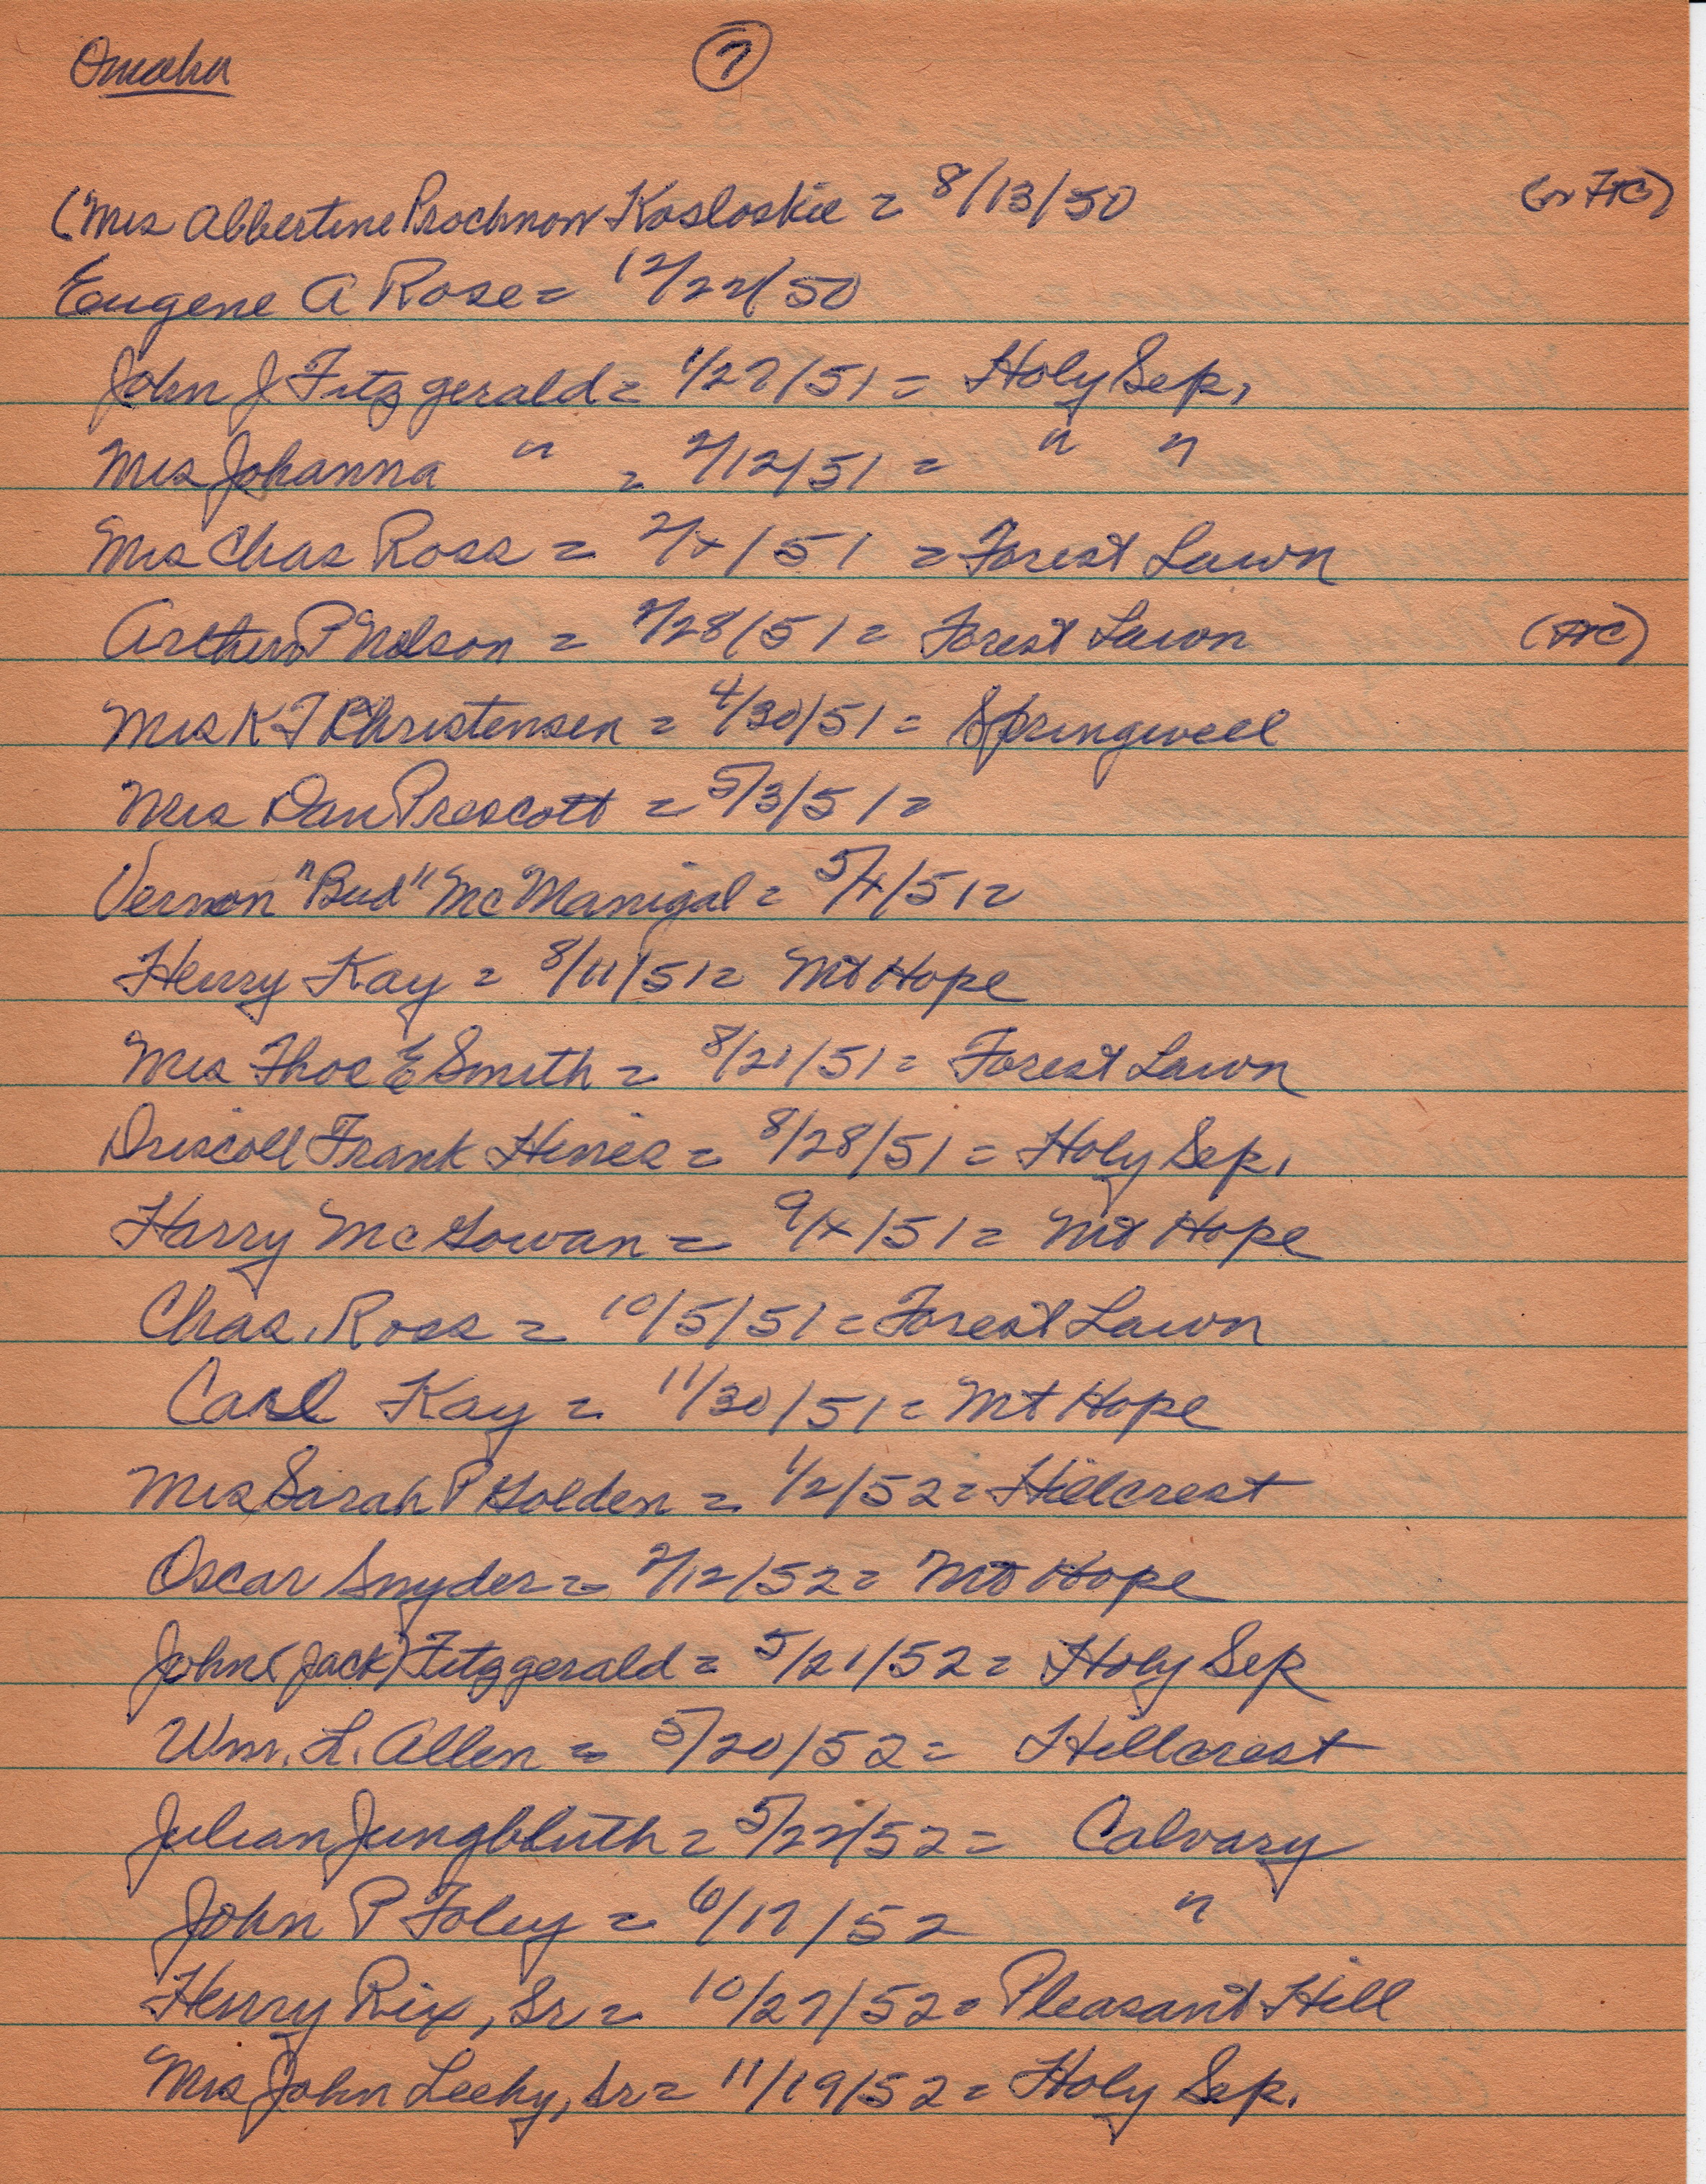 Omaha
7
(Mrs Albertine Prochnow Kosloskie = 8/13/50
Eugene A Rose = 12/22/50
John J Fitzgerald = 1/27/51 = Holy Sep.
Mrs Johanna " = 2/12/51 = " "
Mrs Chas Ross = 2/x/51 = Forest Lawn
Arthur P Nelson = 2/28/51 = Forest Lawn
Mrs K F Christensen = 4/30/51 = Springwell
Mrs Dan Prescott = 5/3/51 =
Vernon "Bud" McManigal = 5/x/51 =
Henry Kay = 8/11/51 = Mt Hope
Mrs Thos E Smith = 8/21/51 = Forest Lawn
Driscoll Frank Hines = 8/28/51 = Holy Sep.
Harry McGowan = 9/x/51 = Mt Hope
Chas. Ross = 10/5/51 = Forest Lawn
Carl Kay = 11/30/51 = Mt Hope
Mrs Sarah P Golden = 1/2/52 = Hillcrest
Oscar Snyder = 2/12/52 = Mt Hope
John (Jack) Fitzgerald = 5/21/52 = Holy Sep
Wm. L. Allen = 5/20/52 = Hillcrest
Julian Jungbluth = 5/22/52 = Calvary
John P Foley = 6/17/52 "
Henry Rix, Sr = 10/27/52 = Pleasant Hill
Mrs John Leehy, Sr = 11/19/52 = Holy Sep.